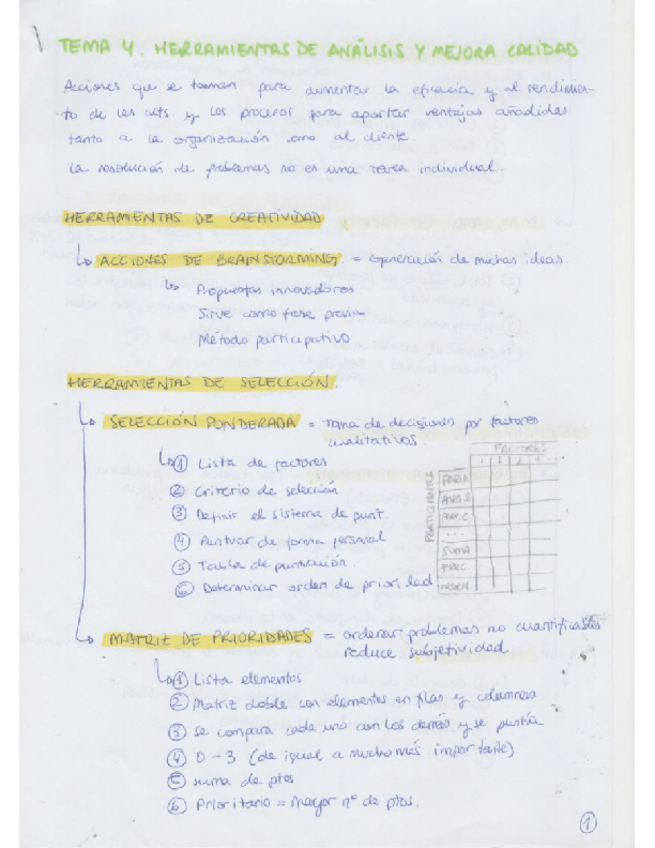 TEMA 4. HERRAMIENTAS DE ANÁLISIS Y MEJORA CALIDAD
Acciones que se toman para aumentar la eficacia y el rendimien-
to de las acts. y los procesos para aportar ventajas añadidas
tanto a la organización como al cliente.
La resolución de problemas no es una tarea individual.
HERRAMIENTAS DE CREATIVIDAD
↳ ACCIONES DE BRAINSTORMING. = Generación de muchas ideas
↳ Propuestas innovadoras
Sirve como fase previa
Método participativo
HERRAMIENTAS DE SELECCIÓN.
↳ SELECCIÓN PONDERADA = Toma de decisiones por factores
cualitativos.
↳ ① Lista de factores
② Criterio de selección
③ Definir el sistema de punt.
④ Puntuar de forma personal
⑤ Tabla de puntuación.
⑥ Determinar orden de prioridad
FACTORES
PARTICIPANTES
PART. B
PART. C
...
SUMA
ORDEN
↳ MATRIZ DE PRIORIDADES = ordenar problemas no cuantificables
reduce subjetividad
↳ ① Lista elementos
② Matriz doble con elementos en filas y columnas
③ Se compara cada uno con los demás y se puntúa
④ 0 - 3 (de igual a mucho más importante)
⑤ suma de ptos
⑥ Prioritario = Mayor nº de ptos.
1